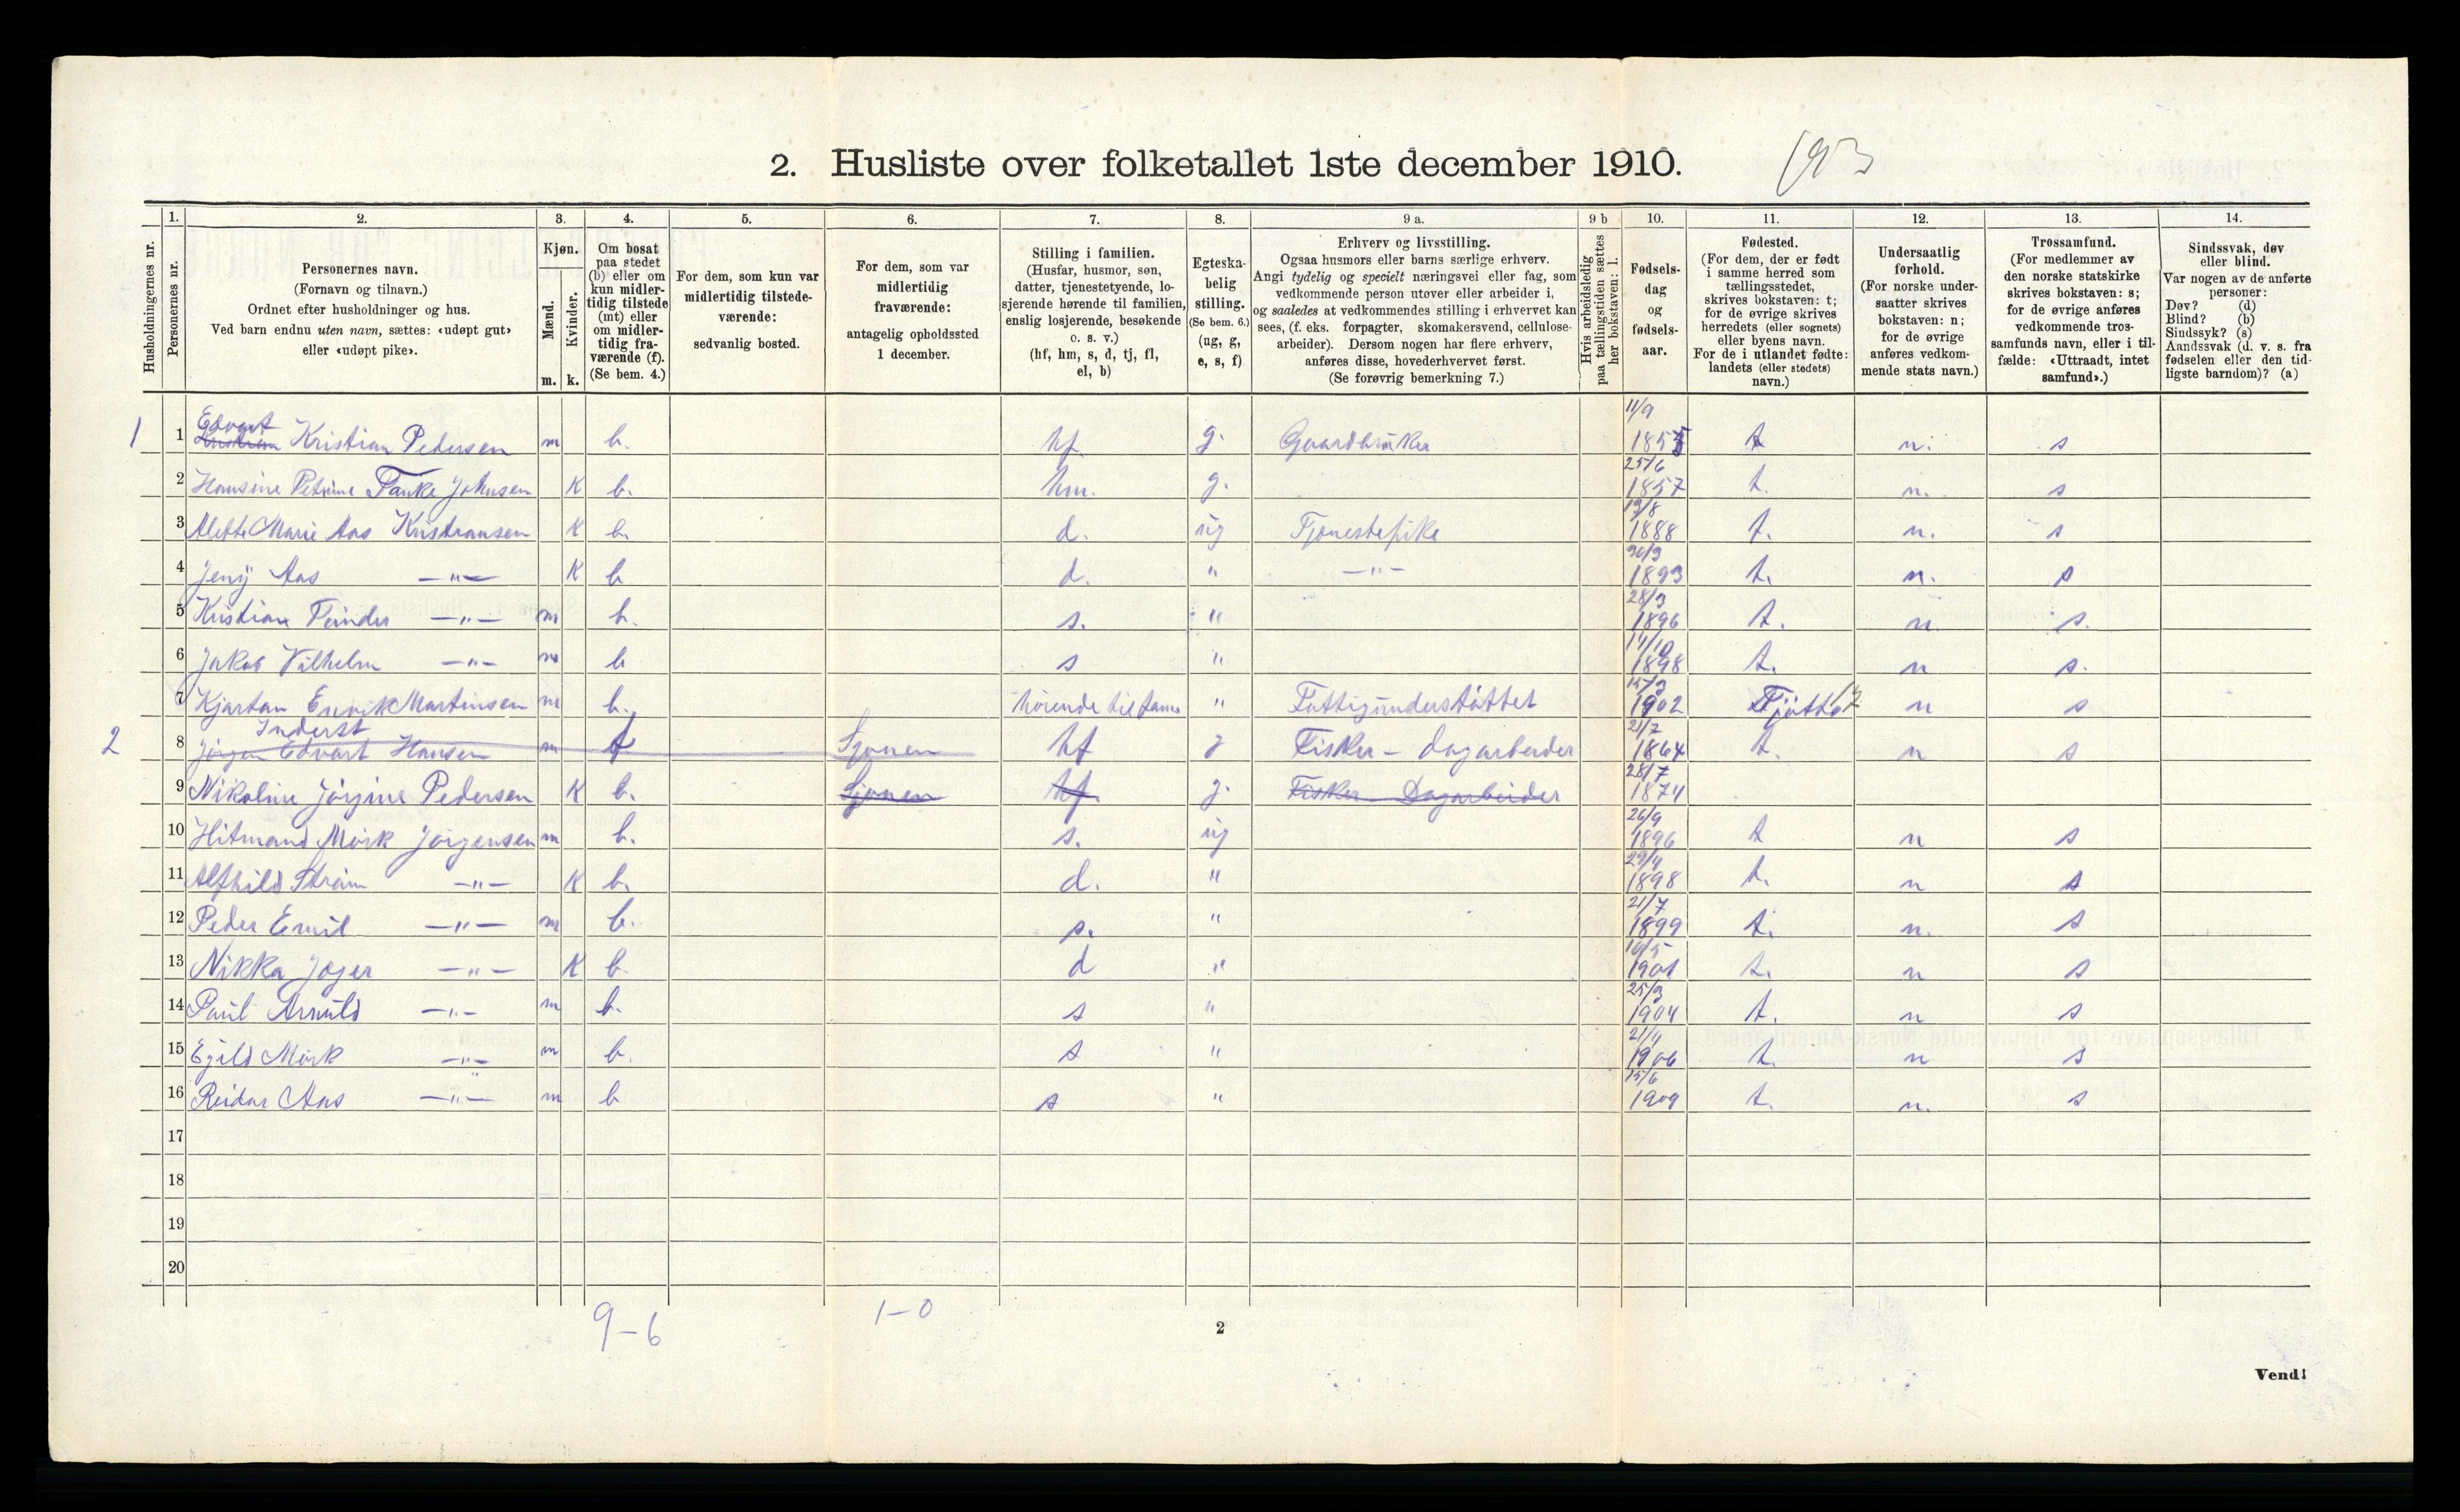 2. Husliste over folketallet 1ste december 1910.
193
Husholdningernes nr.
1.
Personernes nr.
2.
Personernes navn.
(Fornavn og tilnavn.)
Ordnet efter husholdninger og hus.
Ved barn endnu uten navn, sættes: «udøpt gut»
eller «udøpt pike».
3.
Kjøn.
Mænd.
Kvinder.
m. k.
4.
Om bosat
paa stedet
(b) eller om
kun midler-
tidig tilstede
(mt) eller
om midler-
tidig fra-
værende (f).
(Se bem. 4.)
5.
For dem, som kun var
midlertidig tilstede-
værende:
sedvanlig bosted.
6.
For dem, som var
midlertidig
fraværende:
antagelig opholdssted
1 december.
7.
Stilling i familien.
(Husfar, husmor, søn,
datter, tjenestetyende, lo-
sjerende hørende til familien,
enslig losjerende, besøkende
o. s. v.)
(hf, hm, s, d, tj, fl,
el, b)
8.
Egteska-
belig
stilling.
(Se bem. 6.)
(ug, g,
e, s, f)
9 a.
Erhverv og livsstilling.
Ogsaa husmors eller barns særlige erhverv.
Angi tydelig og specielt næringsvei eller fag, som
vedkommende person utøver eller arbeider i,
og saaledes at vedkommendes stilling i erhvervet kan
sees, (f. eks. forpagter, skomakersvend, cellulose-
arbeider). Dersom nogen har flere erhverv,
anføres disse, hovederhvervet først.
(Se forøvrig bemerkning 7.)
9 b
Hvis arbeidsledig
paa tællingstiden sættes
her bokstaven: l.
10.
Fødsels-
dag
og
fødsels-
aar.
11.
Fødested.
(For dem, der er født
i samme herred som
tællingsstedet,
skrives bokstaven: t;
for de øvrige skrives
herredets (eller sognets)
eller byens navn.
For de i utlandet fødte:
landets (eller stedets)
navn.)
12.
Undersaatlig
forhold.
(For norske under-
saatter skrives
bokstaven: n;
for de øvrige
anføres vedkom-
mende stats navn.)
13.
Trossamfund.
(For medlemmer av
den norske statskirke
skrives bokstaven: s;
for de øvrige anføres
vedkommende tros-
samfunds navn, eller i til-
fælde: «Uttraadt, intet
samfund».)
14.
Sindssvak, døv
eller blind.
Var nogen av de anførte
personer:
Døv? (d)
Blind? (b)
Sindssyk? (s)
Aandssvak (d. v. s. fra
fødselen eller den tid-
ligste barndom)? (a)
1 1 Edvart Kristian Pedersen m b. hf g. Gaardbruker 11/9 1855 t n. s
2 Hansine Petrine Fanke Johnsen K b. hm. g. 25/6 1857 t. n. s
3 Alette Marie Aas Kristiansen K b. d. ug Tjenestepike 13/8 1888 t. n. s
4 Jeny Aas —"— K b d. " —"— 30/3 1893 t. n. s
5 Kristian Peinder —"— m b. s. " 28/3 1896 t. n s.
6 Jakob Vilhelm —"— m b s " 14/10 1898 t. n s.
7 Kjartan Enrik Martinsen m b. hörende til fam. " Fattigunderstöttet 15/3 1902 Tjøtta n s
Inderst
2 8 Jørgen Edvart Hansen m f Sjonen hf g Fisker - dagarbeider 21/7 1864 t. n s
9 Nikoline Jörgine Pedersen K b. Sjonen hf. g. Fisker Dagarbeider 28/7 1874
10 Hitmand Mörk Jörgensen m b. s. ug 26/9 1896 t n s
11 Alfhild Ström —"— K b. d. " 29/4 1898 t. n s
12 Peder Emil —"— m b. s. " 21/7 1899 t. n. s
13 Nikka Joger —"— K b. d " 16/5 1901 t. n s
14 Paul Arnuld —"— m b. s " 25/3 1904 t. n s
15 Egild Mörk —"— m b. s " 21/4 1906 t. n s
16 Reidar Aas —"— m b s " 15/6 1909 t. n. s
17
18
19
20
9-6
1-0
2
Vend!